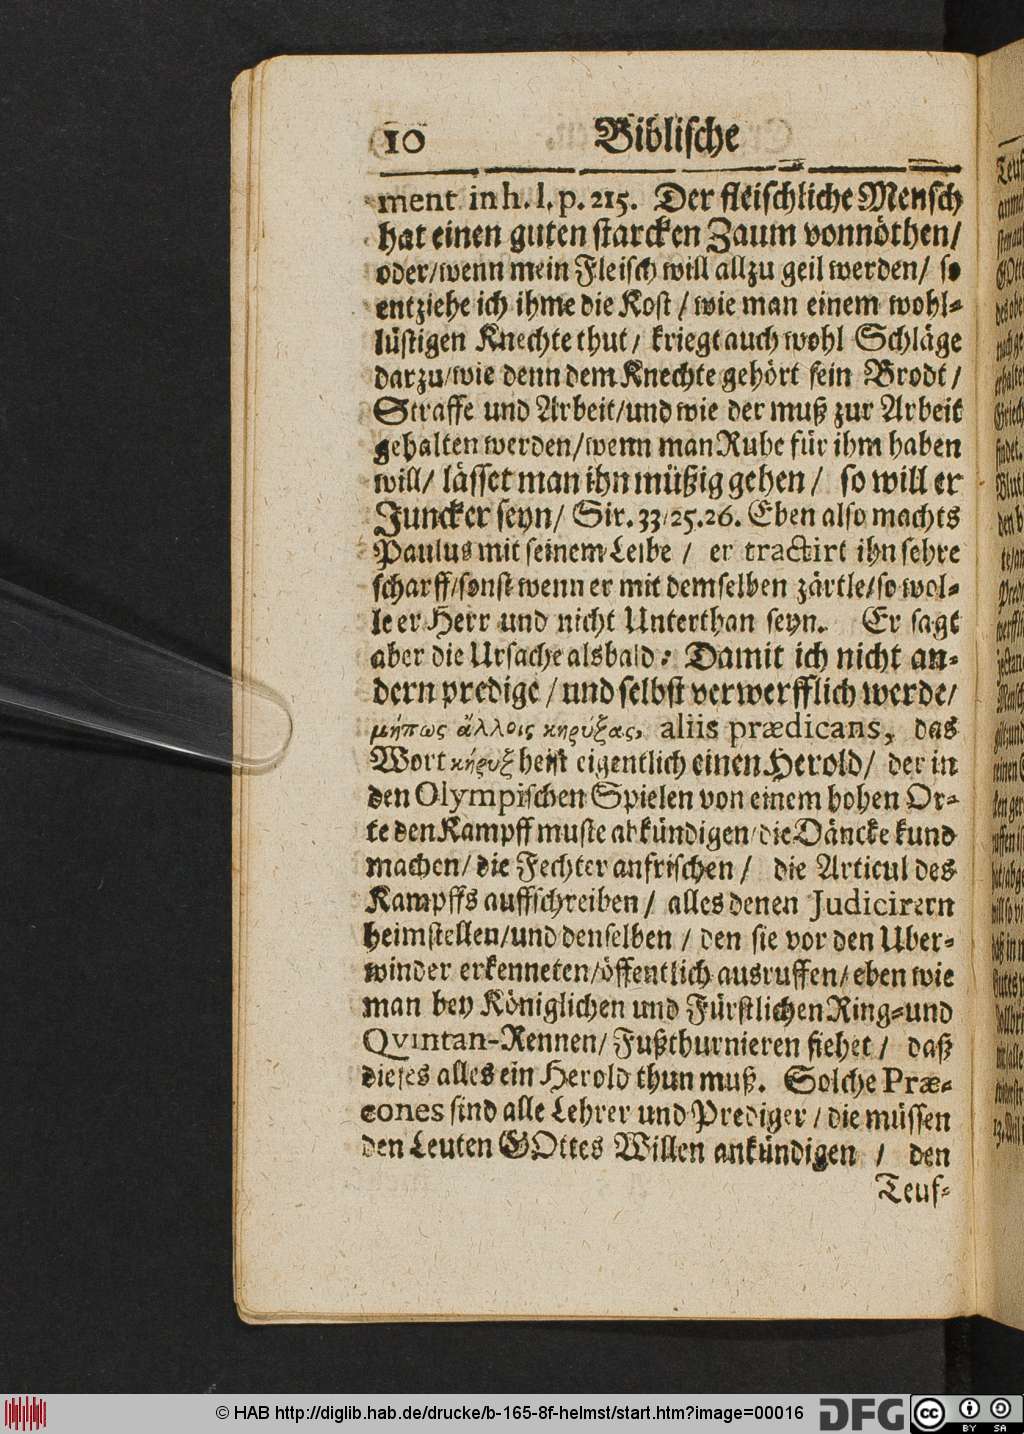 10 Biblische
ment in h. l. p. 215. Der fleischliche Mensch
hat einen guten starcken Zaum vonnöthen/
oder/wenn mein Fleisch will allzu geil werden/ so
entziehe ich ihme die Kost / wie man einem wohl-
lüstigen Knechte thut / kriegt auch wohl Schläge
darzu/wie denn dem Knechte gehört sein Brodt /
Straffe und Arbeit/und wie der muß zur Arbeit
gehalten werden/wenn man Ruhe für ihm haben
will/ lässet man ihn müßig gehen / so will er
Juncker seyn/ Sir. 33/25.26. Eben also machts
Paulus mit seinem Leibe / er tractirt ihn sehre
scharff/sonst wenn er mit demselben zärtle/so wol-
le er Herr und nicht Unterthan seyn. Er sagt
aber die Ursache alsbald: Damit ich nicht an-
dern predige / und selbst verwerfflich werde/
μήπως ἄλλοις κηρύξας, aliis prædicans, das
Wort κήρυξ heist eigentlich einen Herold/ der in
den Olympischen Spielen von einem hohen Or-
te den Kampff muste abkündigen/die Däncke kund
machen/ die Fechter anfrischen / die Articul des
Kampffs auffschreiben / alles denen Judicirern
heimstellen/und denselben / den sie vor den Uber-
winder erkenneten/öffentlich ausruffen/eben wie
man bey Königlichen und Fürstlichen Ring-und
Qvintan-Rennen/ Fußthurnieren siehet / daß
dieses alles ein Herold thun muß. Solche Præ-
cones sind alle Lehrer und Prediger / die müssen
den Leuten GOttes Willen ankündigen / den
Teuf-
© HAB http://diglib.hab.de/drucke/b-165-8f-helmst/start.htm?image=00016
DFG
cc
BY SA